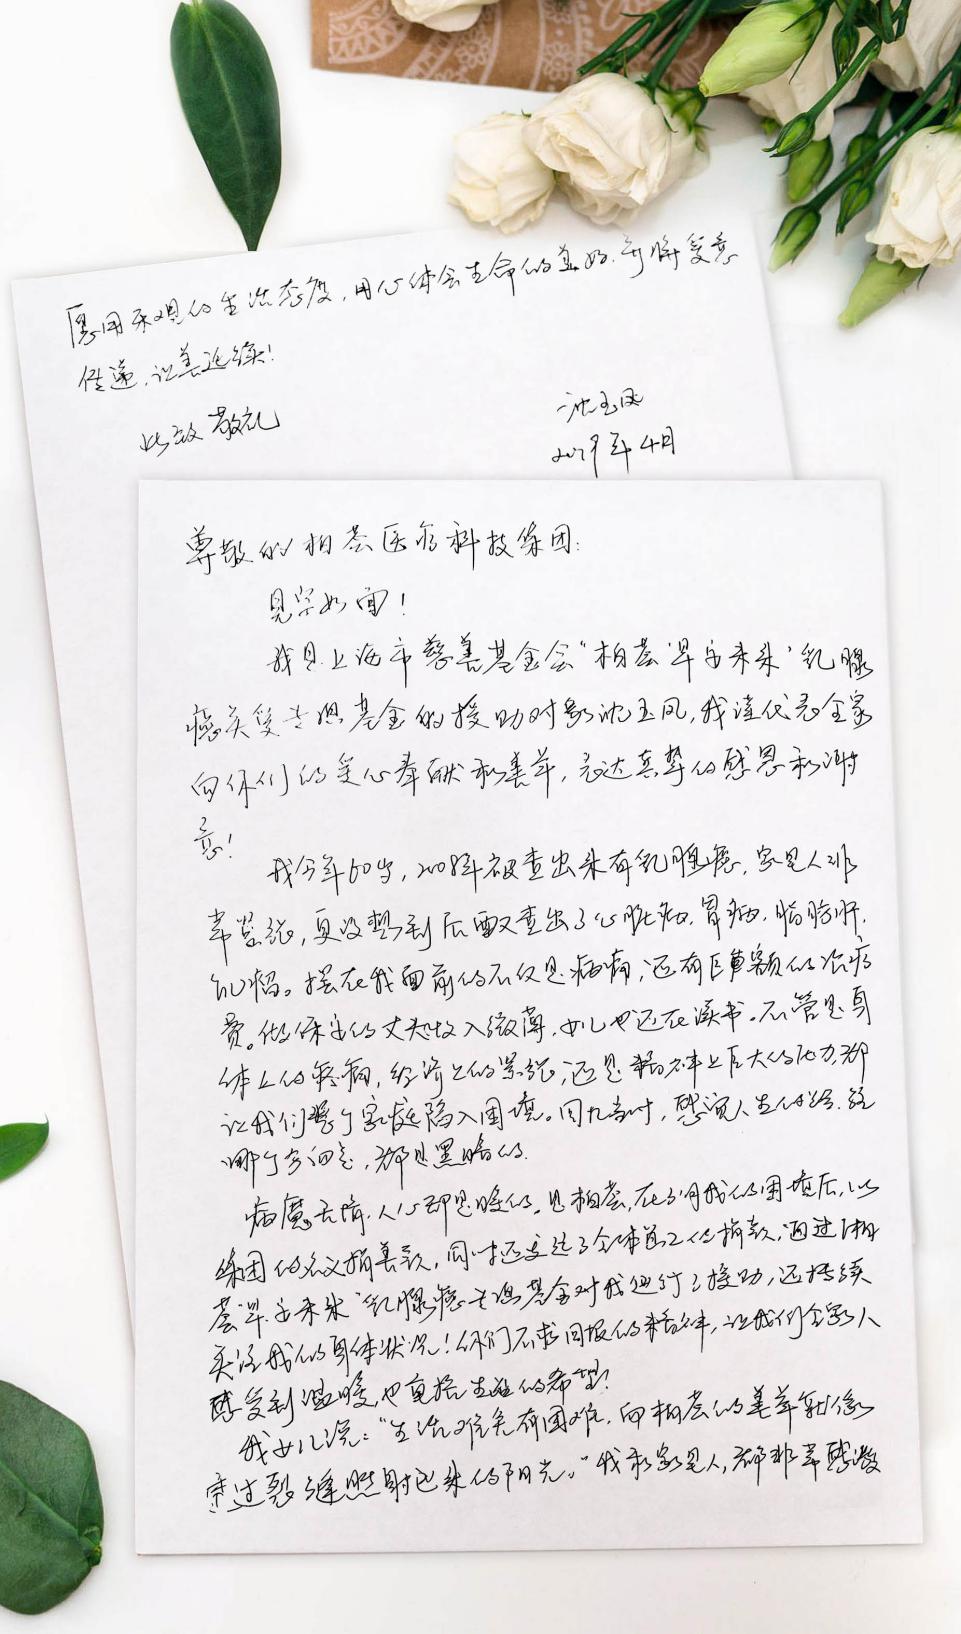 愿用乐观的生活态度，用心体会生命的美好，并将爱意
传递，让美延续！
此致 敬礼
沈玉凤
2019年4月
尊敬的相荟医疗科技集团：
见字如面！
我是上海市慈善基金会“相荟‘早安未来’乳腺
癌关爱专项基金的援助对象沈玉凤，我谨代表全家
向你们的爱心奉献和善举，表达真挚的感恩和谢
意！
我今年60岁，2008年被查出来有乳腺癌，家里人非
常紧张，更没想到后面又查出了心脏病，胃病，脂肪肝，
肌瘤。摆在我面前的不仅是病痛，还有巨额的治疗
费。做保安的丈夫收入微薄，女儿也还在读书。不管是身
体上的疼痛，经济上的紧张，还是精神上巨大的压力，都
让我们整个家庭陷入困境。回忆当时，感觉人生
哪个方向走，都是黑暗的。
病魔无情，人心却是暖的。是相荟，在了解我的困境后，以
集团的名义捐善款，同时还发起了全体员工的捐款，通过“相
荟‘早安未来’乳腺癌专项基金对我进行了援助，还持续
关注我的身体状况！你们不求回报的精神，让我们全家人
感受到温暖，也重拾生活的希望！
我女儿说：“生活难免有困难，而相荟的善举就像
穿过裂缝照射进来的阳光。”我和家里人，都非常感激